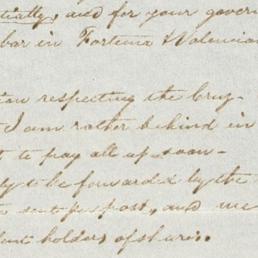 tially, and for your govern
bar in Fortuna & Valencian
respecting the Brug-
I am rather behind in
to pay all up soon-
to be forwarded by the
sent per post, and we
holders of shares.